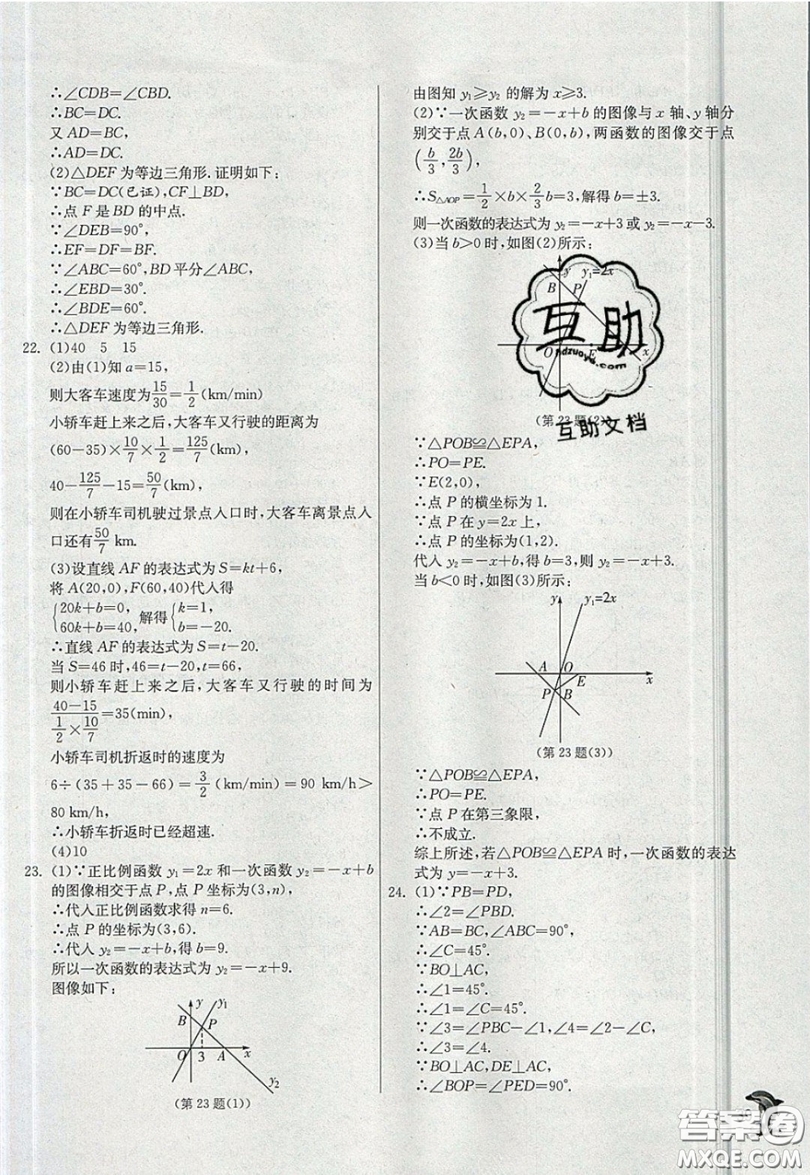 ∴∠CDB=∠CBD.
∴BC=DC.
又 AD=BC,
∴AD=DC.
(2)△DEF 为等边三角形. 证明如下:
∵BC=DC(已证),CF⊥BD,
∴点 F 是 BD 的中点.
∵∠DEB=90°,
∴EF=DF=BF.
∵∠ABC=60°,BD 平分∠ABC,
∴∠EBD=30°.
∴∠BDE=60°.
∴△DEF 为等边三角形.
22. (1)40 5 15
(2)由(1)知 a=15,
则大客车速度为15/30=1/2(km/min)
小轿车赶上来之后,大客车又行驶的距离为
(60-35)×10/7×1/2=125/7(km),
40-125/7-15=50/7(km),
则在小轿车司机驶过景点入口时,大客车离景点入
口还有50/7 km.
(3)设直线 AF 的表达式为 S=kt+6,
将 A(20,0),F(60,40)代人得
{20k+b=0, 60k+b=40, 解得{k=1, b=-20.
∴直线 AF 的表达式为 S=t-20.
当 S=46 时,46=t-20,t=66,
则小轿车赶上来之后,大客车又行驶的时间为
(40-15)/(1/2×10/7)=35(min),
小轿车司机折返时的速度为
6÷(35+35-66)=3/2(km/min)=90 km/h>
80 km/h,
∴小轿车折返时已经超速.
(4)10
23. (1)∵正比例函数 y₁=2x 和一次函数 y₂=-x+b
的图像相交于点 P,点 P 坐标为(3,n),
∴代人正比例函数求得 n=6.
∴点 P 的坐标为(3,6).
∴代人 y₂=-x+b,得 b=9.
所以一次函数的表达式为 y₂=-x+9.
图像如下:
y
y₁
B
P
O
3
A
x
y₂
(第 23 题(1))
由图知 y₁≥y₂ 的解为 x≥3.
(2)∵一次函数 y₂=-x+b 的图像与 x 轴、y 轴分
别交于点 A(b,0)、B(0,b),两函数的图像交于点
(b/3,2b/3),
∴S△AOP=1/2×b×2/3b=3,解得 b=±3.
则一次函数的表达式为 y₂=-x+3 或 y₂=-x-3.
(3)当 b>0 时,如图(2)所示:
y
y₁=2x
B
P
O
E
x
互助
hdzuoye.com
(第 23 题(2))
互助文档
∵△POB≌△EPA,
∴PO=PE.
∵E(2,0),
∴点 P 的横坐标为 1.
∵点 P 在 y=2x 上,
∴点 P 的坐标为(1,2).
代人 y₂=-x+b,得 b=3,则 y₂=-x+3.
当 b<0 时,如图(3)所示:
y
y₁=2x
A
O
E
x
P
B
(第 23 题(3))
∵△POB≌△EPA,
∴PO=PE.
∵点 P 在第三象限,
∴不成立.
综上所述,若△POB≌△EPA 时,一次函数的表达
式为 y=-x+3.
24. (1)∵PB=PD,
∴∠2=∠PBD.
∵AB=BC,∠ABC=90°,
∴∠C=45°.
∵BO⊥AC,
∴∠1=45°.
∴∠1=∠C=45°.
∵∠3=∠PBC-∠1,∠4=∠2-∠C,
∴∠3=∠4.
∵BO⊥AC,DE⊥AC,
∴∠BOP=∠PED=90°.
答案卷
MXQE.COM